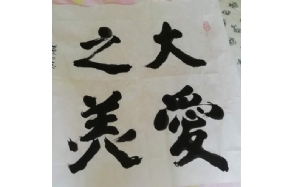 大愛
之美